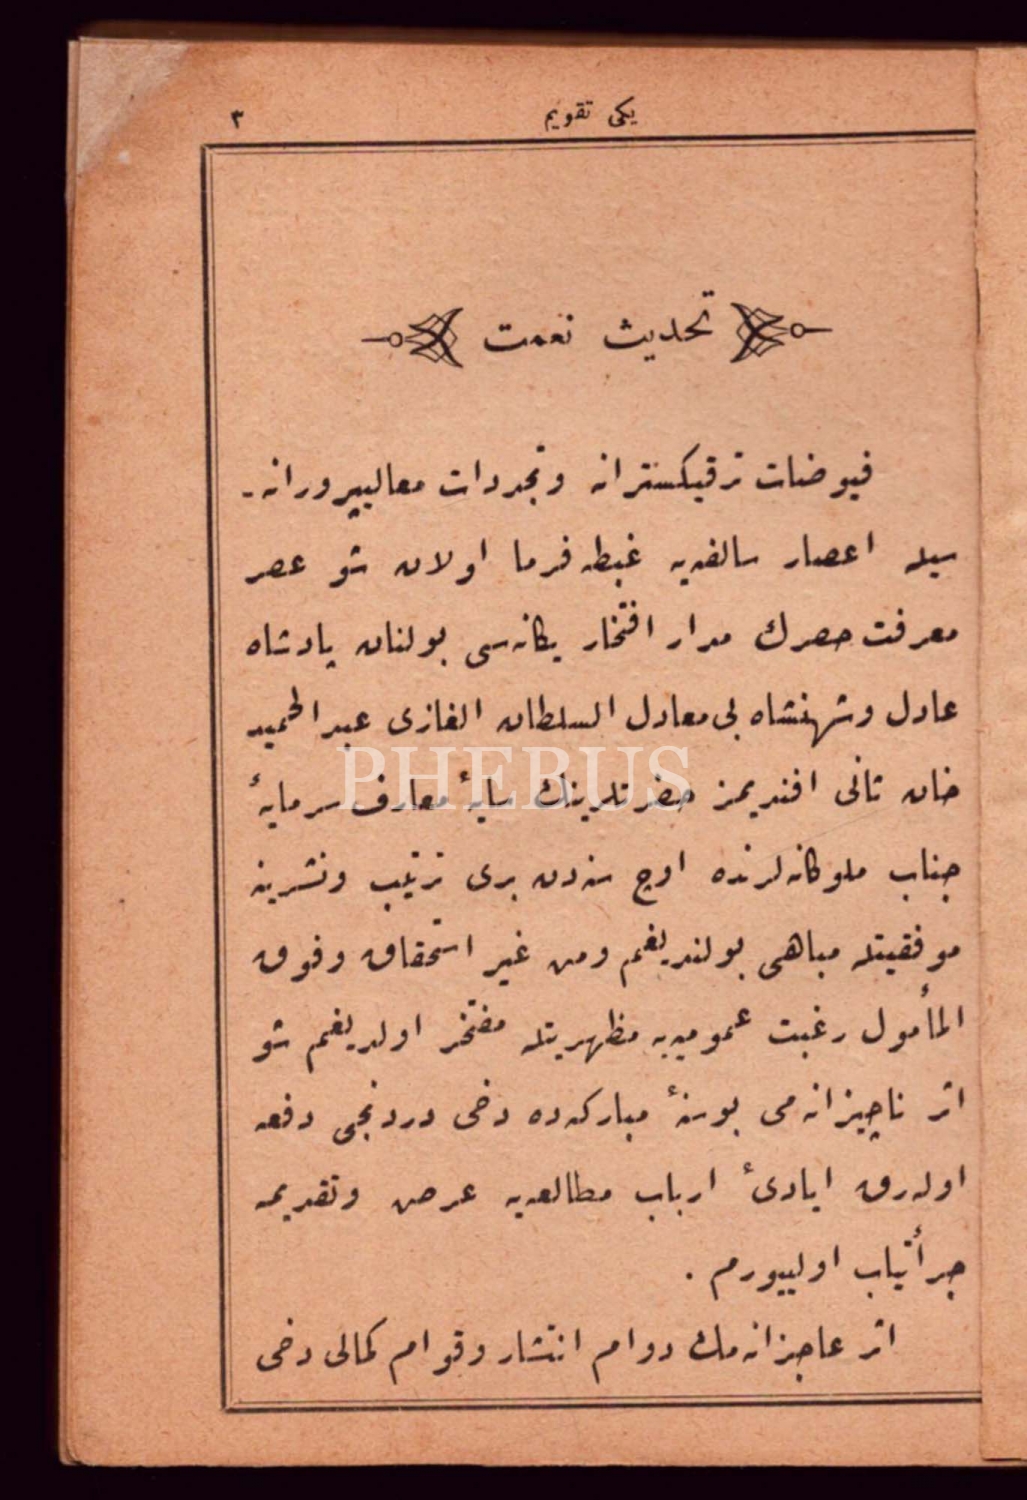 يكی تقويم
٣
تحديث نعمت
فيوضات ترقيكسترانه وتجددات معاليپرورانه ـ
سيله اعصار سالفه‌يه غبطه فرما اولان شو عصر
معرفت حصرك مدار افتخار يكانه‌سی بولنان پادشاه
عادل وشهنشاه بی معادل السلطان الغازی عبدالحميد
خان ثانی افنديمز حضرتلرينك سايۀ معارف سرمايۀ
جناب ملوكانه‌لرنده اوچ سنه‌دن بری ترتيب ونشرينه
موفقيتله مباهی بولنديغم ومن غير استحقاق وفوق
المأمول رغبت عموميه‌يه مظهريتله مفتخر اولديغم شو
اثر ناچيزانه‌می بو سنۀ مباركه‌ده دخی دردنجی دفعه
اوله‌رق ايادیٔ ارباب مطالعه‌يه عرض وتقديمه
جرأتياب اولييورم .
اثر عاجزانه‌مك دوام انتشار وقوام كمالی دخی
PHEBUS